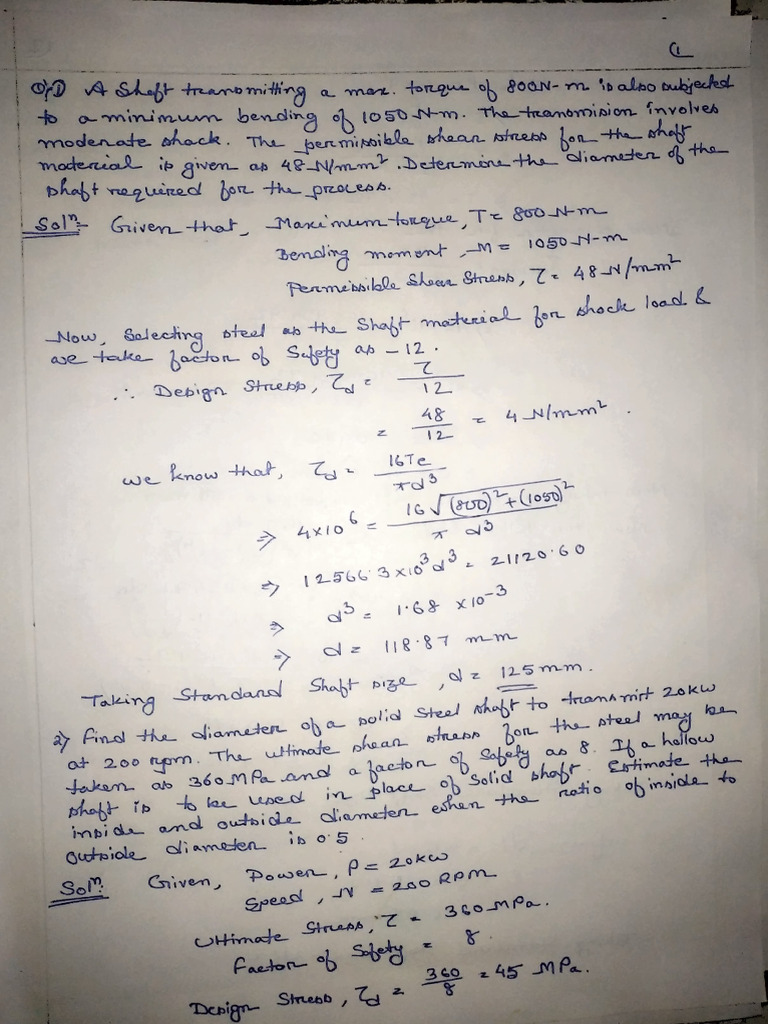 (1
Q/1) A Shaft transmitting a max. torque of 800N-m is also subjected
to a minimum bending of 1050 N-m. The transmision involves
moderate shock. The permissible shear stress for the shaft
material is given as 48 N/mm². Determine the diameter of the
shaft required for the process.
Solⁿ:- Given that, Maximum torque, T = 800 N-m
Bending moment, M = 1050 N-m
Permissible Shear Stress, τ = 48 N/mm²
Now, Selecting steel as the Shaft material for shock load &
we take factor of Safety as - 12.
∴ Design Stress, τd = τ/12
= 48/12 = 4 N/mm².
we know that, τd = 16Te/πd³
⇒ 4×10⁶ = 16√(800)²+(1050)²/π d³
⇒ 12566.3×10³d³ = 21120.60
⇒ d³ = 1.68 ×10⁻³
⇒ d = 118.87 mm
Taking Standard Shaft size, d = 125mm.
2) Find the diameter of a solid Steel shaft to transmit 20kW
at 200 rpm. The ultimate shear stress for the steel may be
taken as 360MPa and a factor of Safety as 8. If a hollow
shaft is to be used in place of Solid shaft. Estimate the
inside and outside diameter when the ratio of inside to
outside diameter is 0.5.
Solⁿ: Given, Power, P = 20kW
Speed, N = 200 RPM
Ultimate Stress, τ = 360MPa.
Factor of Safety = 8.
Design Stress, τd = 360/8 = 45 MPa.